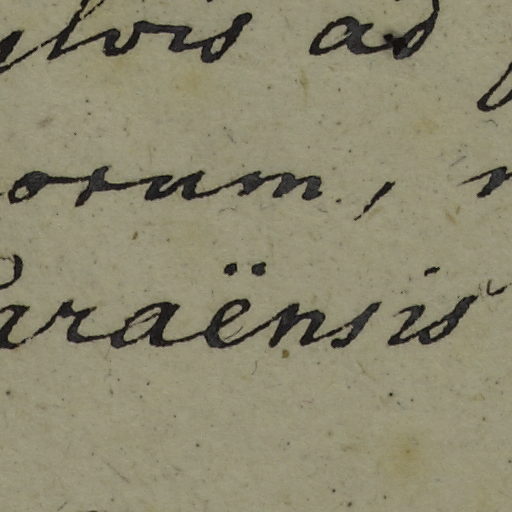 ylvis ad
orum,
Paraënsis